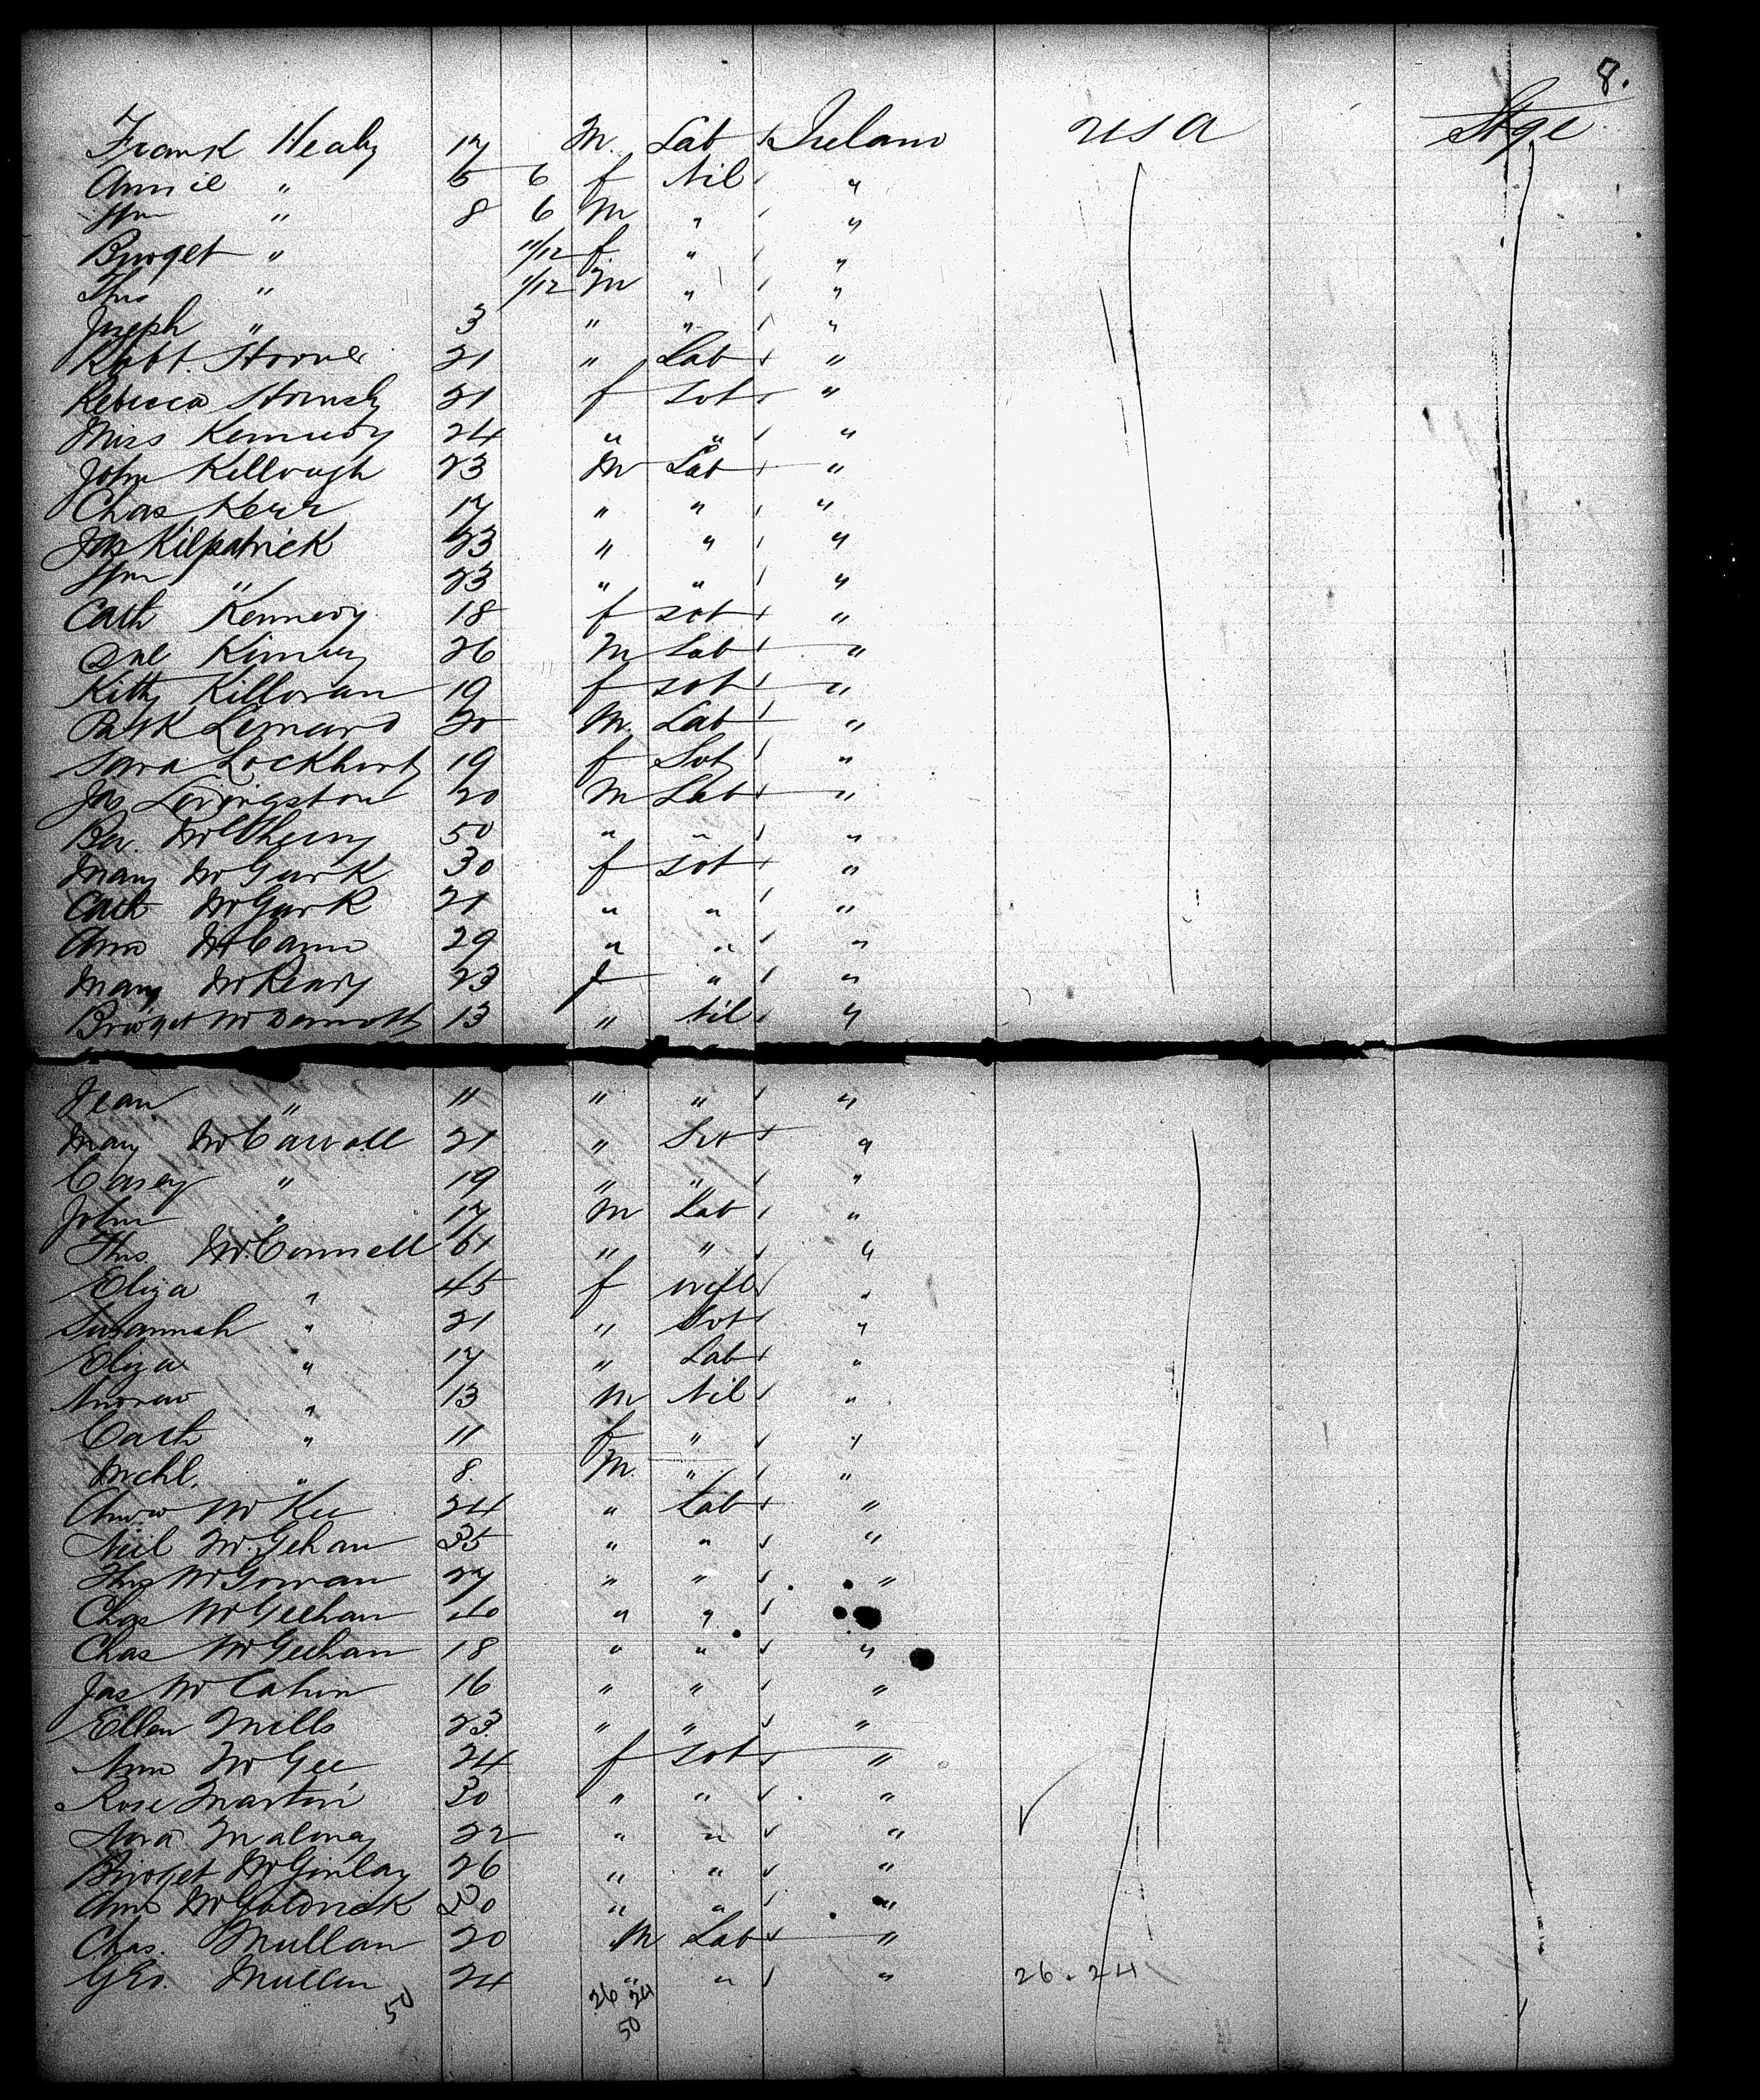 8.
Frank Healy 17 M. Lab Ireland USA Stge
Annie " 5 6 f Nil "
Wm " 8 6 M " "
Bridget " 11/12 f " "
Thos " 1/12 M " "
Joseph " 3 " " "
Robt. 21 " Lab "
Rebecca 21 f Svt "
Miss Kennedy 24 " " "
John Killough 23 M Lab "
Chas Kerr 17 " " "
Jas Kilpatrick 23 " " "
Wm " 23 " " "
Cath Kennedy 18 f svt "
26 M Lab "
Kitty Killoran 19 f svt "
Patk Lenard 20 M. Lab "
Sara Lockhart 19 f Svt "
Jas Livingston 20 M Lab "
50 " " "
Mary McGurk 30 f svt "
Cath McGurk 21 " " "
Ann McCann 29 " " "
Mary 23 f " "
Bridget McDermott 13 " Nil "
Jean " 11 " " "
Mary McCarroll 21 " Svt "
Casey " 19 " " "
John " 17 M Lab "
Thos McConnell 61 " " "
Eliza " 45 f wife "
Susannah " 21 " Svt "
Eliza " 17 " Lab "
Andrew " 13 M Nil "
Cath " 11 f " "
Michl. " 8. M. " "
Andw McKee 24 " Lab "
Neil McGehan 35 " " "
Thos McGowan 27 " " "
Chas McGeehan " " "
Chas McGeehan 18 " " "
Jas McCahin 16 " " "
Ellen Mills 23 " " "
Ann McGee 24 f svt "
Rose Martin 30 " " "
Nora Maloney 22 " " "
Bridget McGinlay 26 " " "
Ann McGoldrick 30 " " "
Chas. Mullan 20 M Lab "
Geo. Mullen 24 " " " 26.24
50 26 24
50